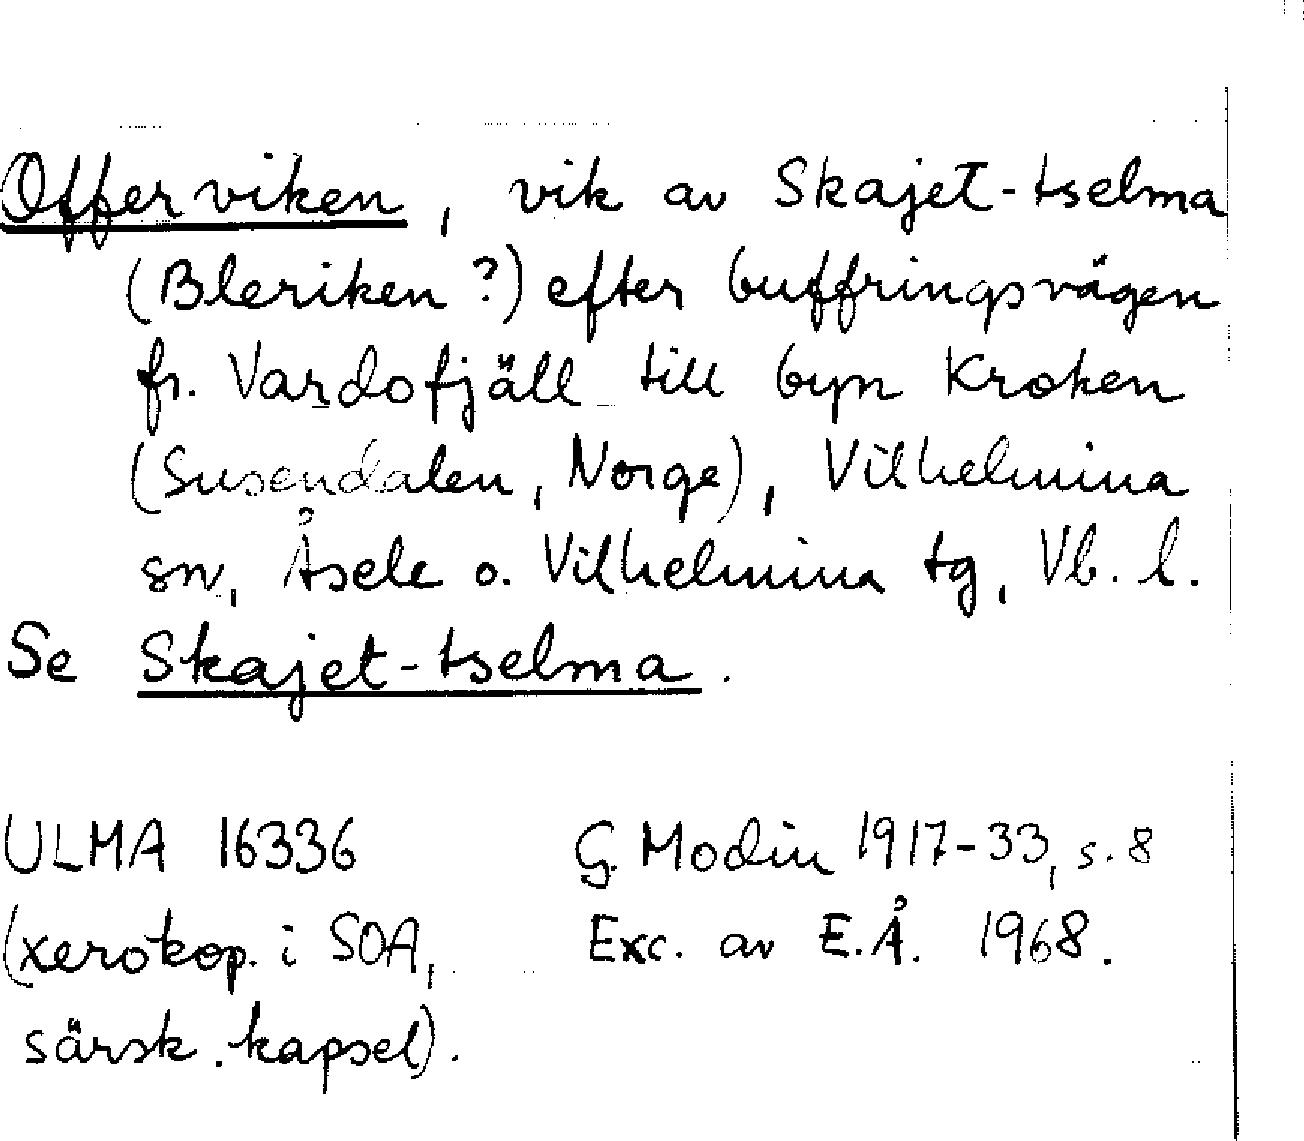 Offerviken, vik av Skajet-tselma
(Bleriken?) efter buffringsvägen
fr. Vardofjäll till byn Kroken
(Susendalen, Norge), Vilhelmina
sn, Åsele o. Vilhelmina tg, Vb. l.
Se Skajet-tselma.
ULMA 16336 G. Modin 1917-33, s. 8
(xerokop. i SOA, Exc. av E.Å. 1968.
särsk. kapsel).